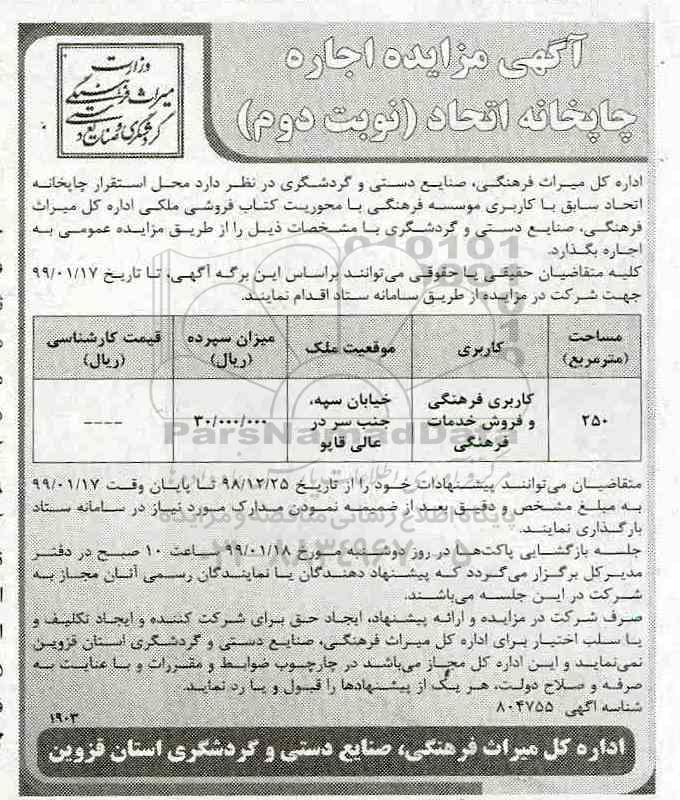 آگهی مزایده اجاره
چاپخانه اتحاد (نوبت دوم)
وزارت
میراث فرهنگی
گردشگری و صنایع دستی
اداره کل میراث فرهنگی، صنایع دستی و گردشگری در نظر دارد محل استقرار چاپخانه
اتحاد سابق با کاربری موسسه فرهنگی با محوریت کتاب فروشی ملکی اداره کل میراث
فرهنگی، صنایع دستی و گردشگری با مشخصات ذیل را از طریق مزایده عمومی به
اجاره بگذارد.
کلیه متقاضیان حقیقی یا حقوقی می‌توانند براساس این برگه آگهی، تا تاریخ ۹۹/۰۱/۱۷
جهت شرکت در مزایده از طریق سامانه ستاد اقدام نمایند.
مساحت (مترمربع) کاربری موقعیت ملک میزان سپرده (ریال) قیمت کارشناسی (ریال)
۲۵۰ کاربری فرهنگی و فروش خدمات فرهنگی خیابان سپه، جنب سر در عالی قاپو ۳۰/۰۰۰/۰۰۰ ----
متقاضیان می‌توانند پیشنهادات خود را از تاریخ ۹۸/۱۲/۲۵ تا پایان وقت ۹۹/۰۱/۱۷
به مبلغ مشخص و دقیق بعد از ضمیمه نمودن مدارک مورد نیاز در سامانه ستاد
بارگذاری نمایند.
جلسه بازگشایی پاکت‌ها در روز دوشنبه مورخ ۹۹/۰۱/۱۸ ساعت ۱۰ صبح در دفتر
مدیرکل برگزار می‌گردد که پیشنهاد دهندگان یا نمایندگان رسمی آنان مجاز به
شرکت در این جلسه می‌باشند.
صرف شرکت در مزایده و ارائه پیشنهاد، ایجاد حق برای شرکت کننده و ایجاد تکلیف و
یا سلب اختیار برای اداره کل میراث فرهنگی، صنایع دستی و گردشگری استان قزوین
نمی‌نماید و این اداره کل مجاز می‌باشد در چارچوب ضوابط و مقررات و با عنایت به
صرفه و صلاح دولت، هر یک از پیشنهادها را قبول و یا رد نماید.
شناسه آگهی ۸۰۴۷۵۵
۱۹۰۳
اداره کل میراث فرهنگی، صنایع دستی و گردشگری استان قزوین
ParsNamadData
پایگاه اطلاع رسانی مناقصه و مزایده